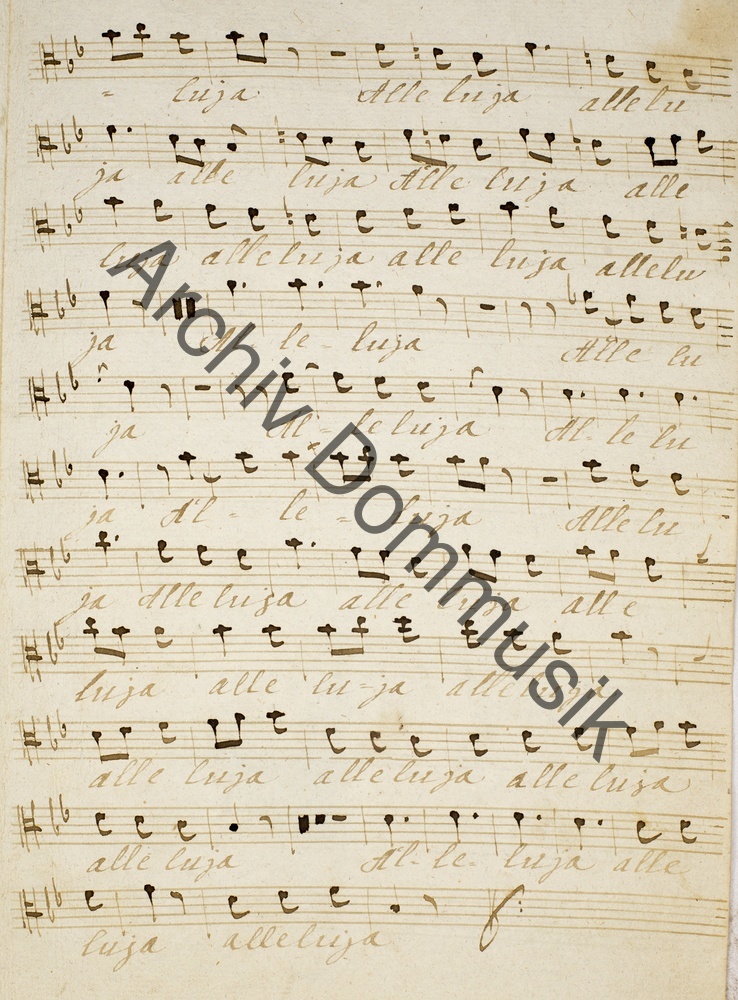 = luja Alleluja allelu
ja alle luja Alle luja alle
luja alleluja alle luja allelu
ja Al le - luja Alle lu
ja Al - leluja Al - le lu
ja Al - le - luja Alle lu
ja Alleluja alle luja alle
luja alle lu=ja alleluja
alle luja alleluja alleluja
alle luja Al - le - luja alle
luja alleluja
Archiv Dommusik